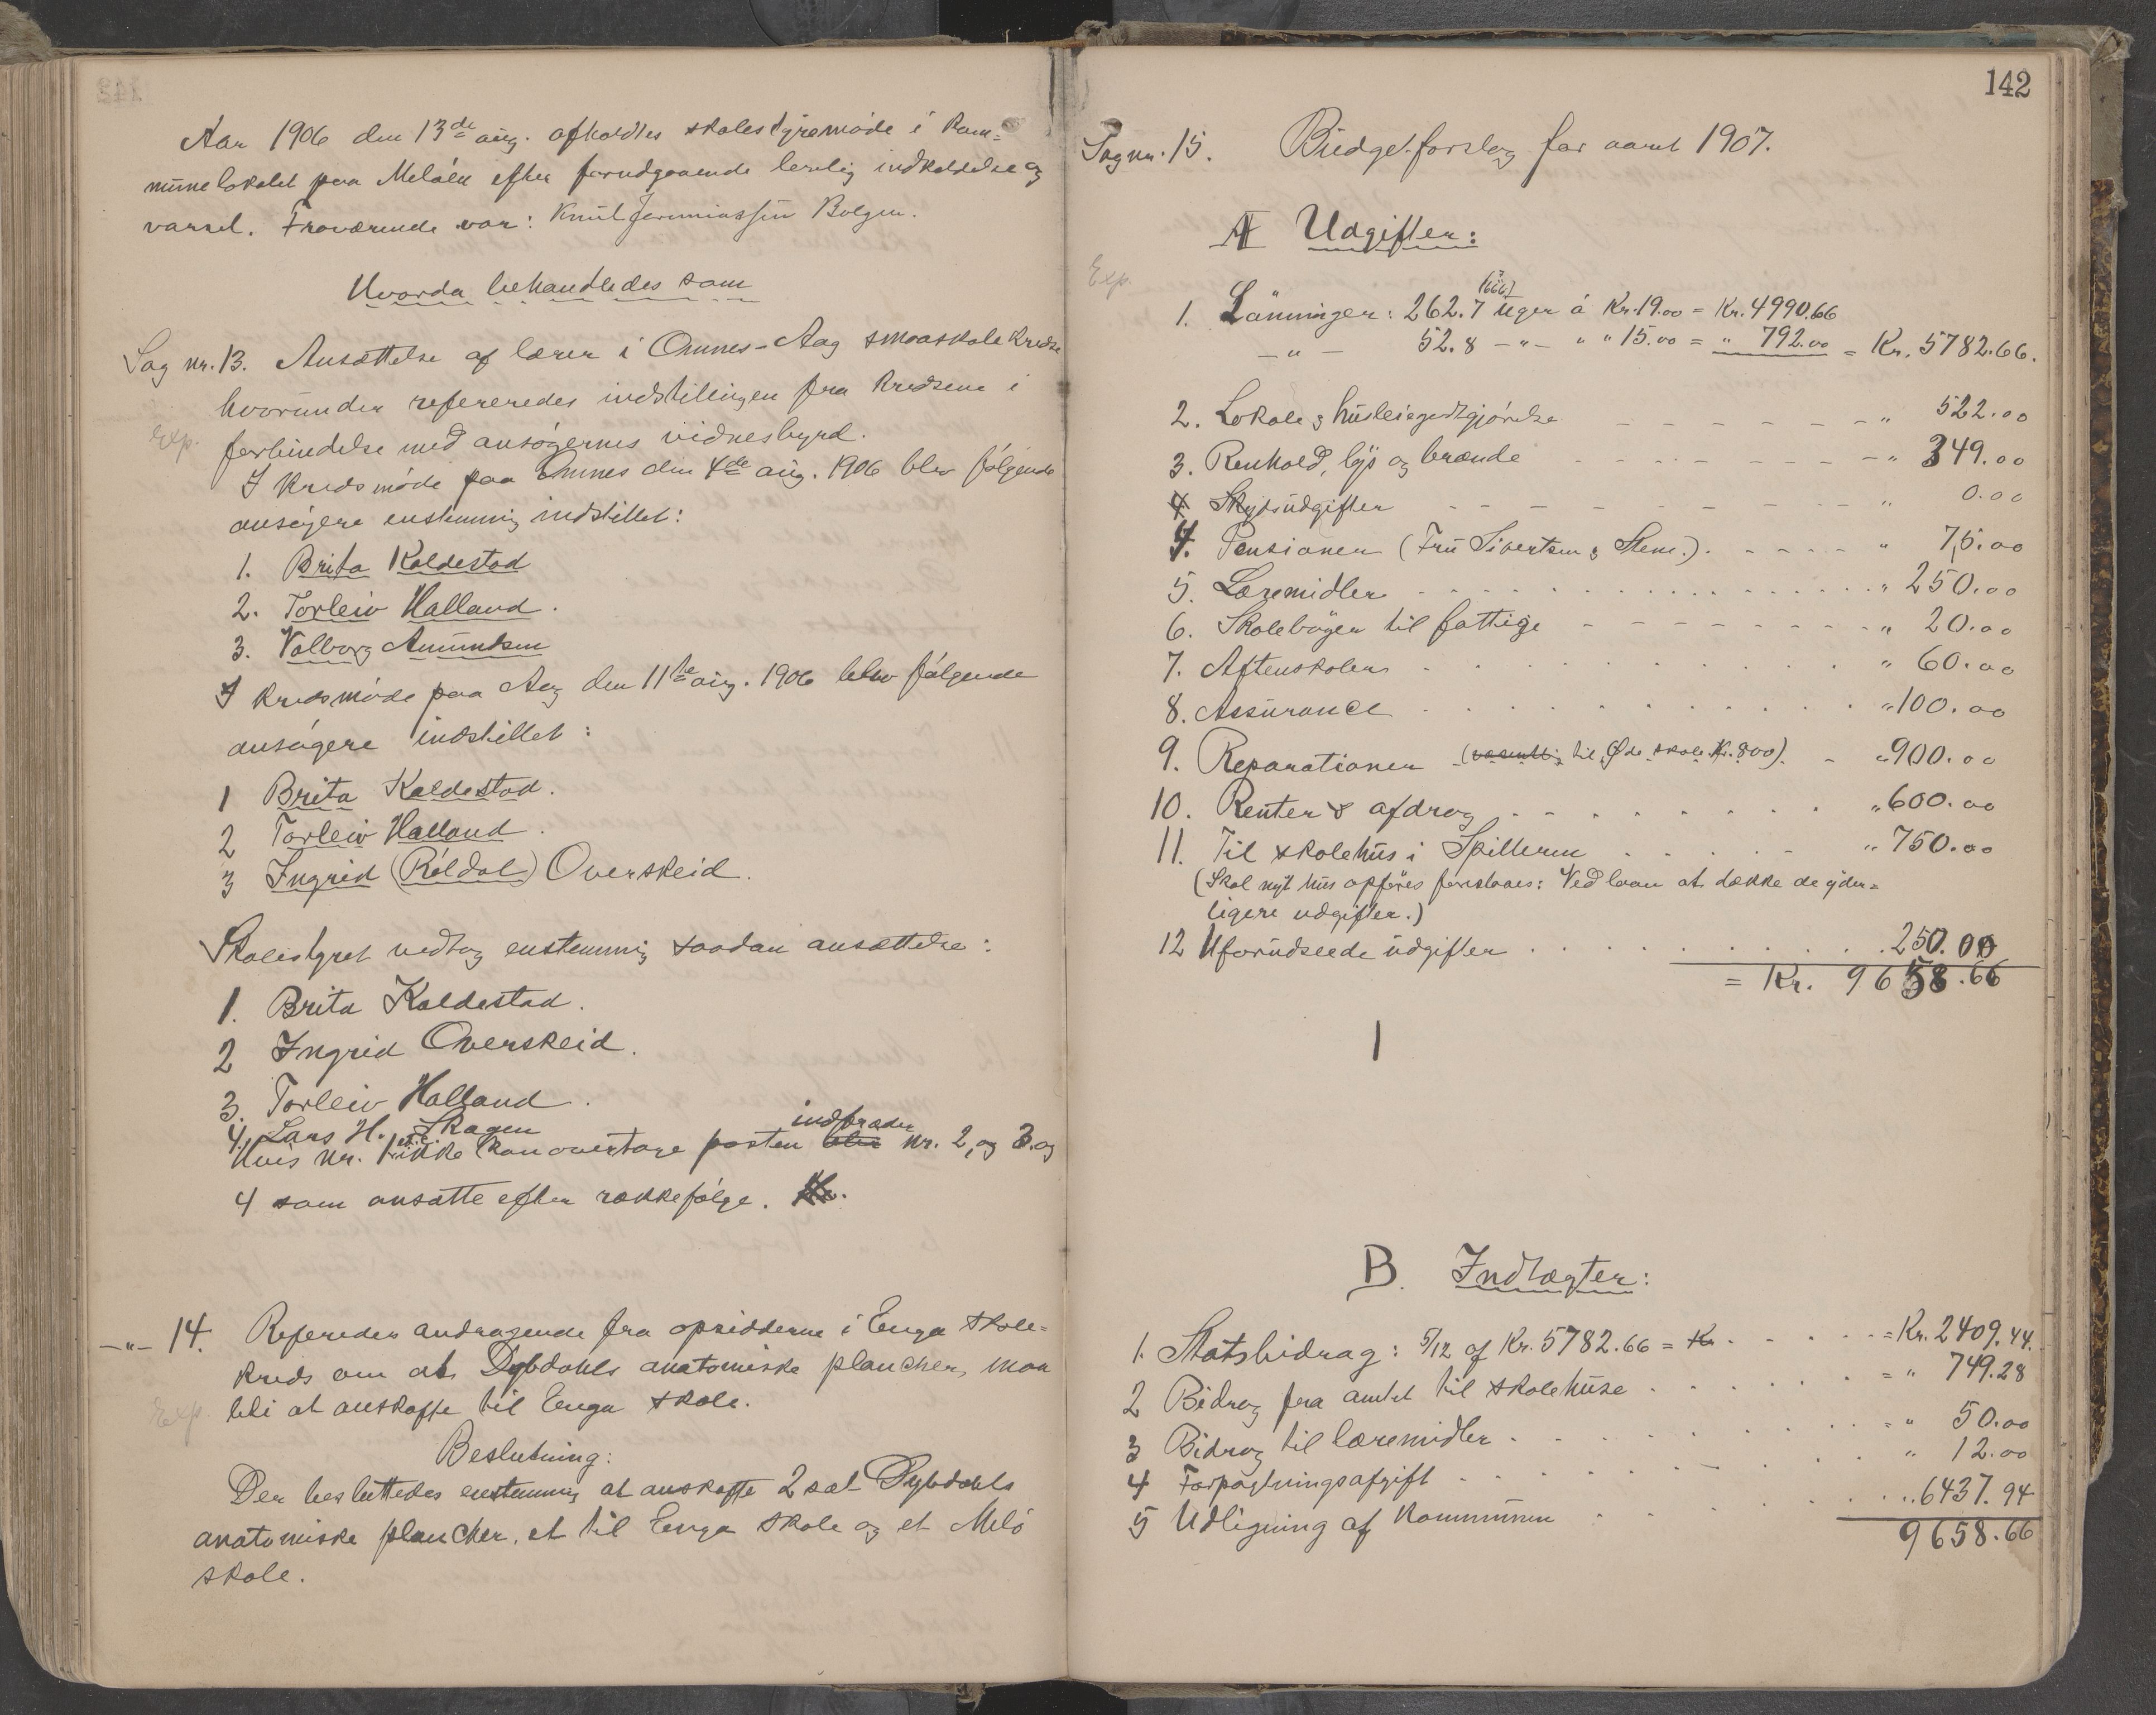 Aar 1906 den 13de aug. afholdtes skolestyremøde i kom=
munelokalet paa Meløen efter forudgaaende lovlig indkaldelse og
varsel. Fraværende var: Knut Jeremiassen Bolgen.
Hvorda behandledes som
Sag nr. 13. Ansættelse af lærer i Ønnes-Aag smaaskolekredse
hvorunder refereredes indstillingen fra kredsene i
Exp. forbindelse med ansøgernes vidnesbyrd.
I kredsmøde paa Ønnes den 4de aug. 1906 blev følgende
ansøgere enstemmig indstillet:
1. Brita Koldestad
2. Torleiv Halland.
3. Valborg Amundsen
I kredsmøde paa Aag den 11te aug. 1906 blev følgende
ansøgere indstillet:
1 Brita Koldestad.
2 Torleiv Halland.
3 Ingrid (Røldal) Overskeid.
Skolestyret vedtog enstemmig saadan ansættelse:
1. Brita Koldestad.
2 Ingrid Overskeid.
3. Torleiv Halland.
4. Lars H. Skagen
indtræder
Hvis nr. 1 ikke kan overtage posten blir nr. 2, og 3. og
4 som ansatte efter rækkefølge.
-"- 14. Referedes andragende fra opsidderne i Enga skole=
kreds om at Dybdahls anatomiske plancher, maa
Exp. bli at anskaffe til Enga skole.
Beslutning:
Der besluttedes enstemmig at anskaffe 2 sæt Dybdahls
anatomiske plancher, et til Enga skole og et Melø
skole.
142
Sag nr. 15. Budgetforslag for aaret 1907.
A Udgifter:
Exp.
(666)
1. Lønninger: 262.7 uger á Kr. 19.00 = Kr. 4990.66
-"- 52.8 -"- " " 15.00 = " 792.00 = Kr. 5782.66.
2. Lokale & husleiegodtgjørelse " 522.00
3. Renhold, lys og brænde " 349.00
4 Skydsudgifter " 0.00
4. Pensioner (Fru Sivertsen & Stene.) " 75.00
5. Læremidler " 250.00
6. Skolebøger til fattige " 20.00
7. Aftenskolen " 60.00
8. Assurance " 100.00
9. Reparationer (væsentlig til Øde skole Kr. 800) " 900.00
10. Renter & afdrag " 600.00
11. Til skolehus i Spilderen " 750.00
(Skal nyt hus opføres foreslaaes: Ved laan at dække de yder=
ligere udgifter.)
12 Uforudseede udgifter 250.00
= Kr. 9658.66
B. Indtægter:
1. Statsbidrag: 5/12 af Kr. 5782.66 = Kr = Kr. 2409.44.
2 Bidrag fra amtet til skolehuse = " 749.28
3 Bidrag til læremidler = " 50.00
4 Forpagtningsafgift " 12.00
5 Udligning af kommunen " 6437.94
9658.66